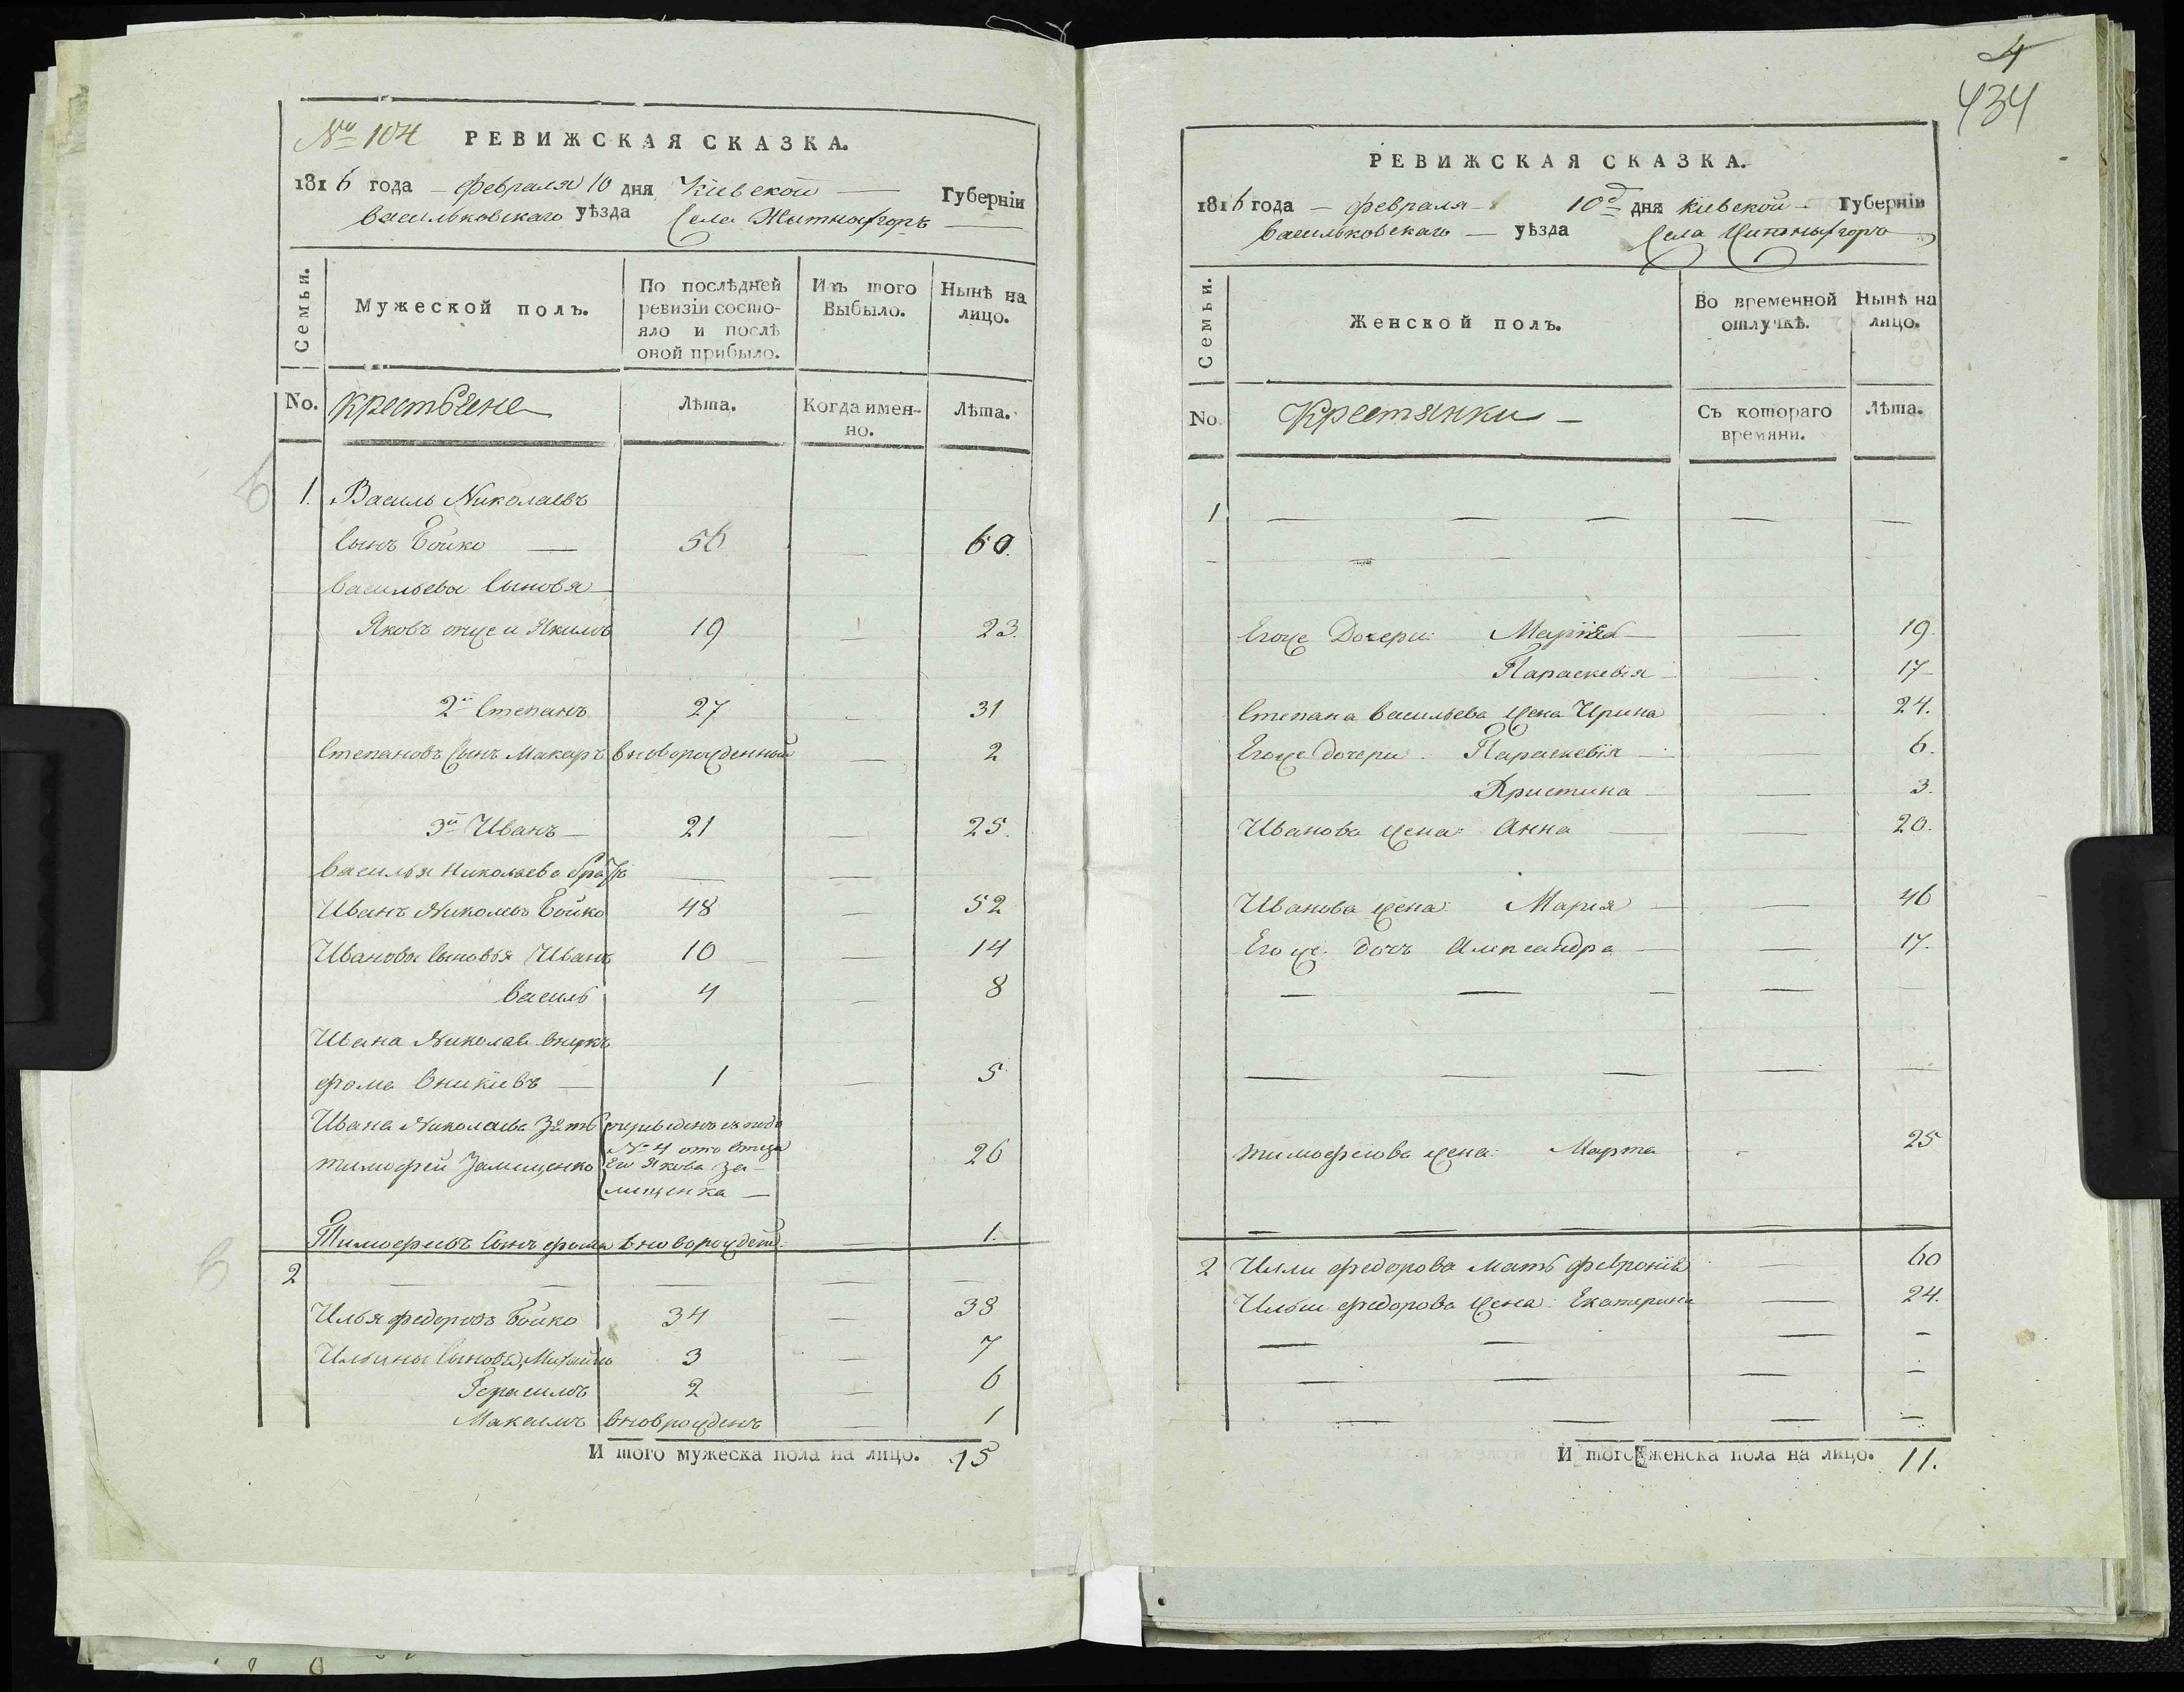 № 104 РЕВИЖСКАЯ СКАЗКА.
1816 года февраля 10 дня Киевской Губернїи
васильковскаго уѣзда Села Жытныхгоръ
Семьи.
Мужеской полъ.
По послѣдней ревизїи состояло и послѣ оной прибыло.
Изъ того Выбыло.
Нынѣ на лицо.
No.
крестьяне
Лѣта.
Когда именно.
Лѣта.
1. Василь Николаевъ
Сынъ Бойко — 56 — 60.
васильевы Сыновя
Яковъ онже и Якимъ 19 — 23.
2й Степанъ 27 — 31
Степановъ Сынъ Макаръ вноворожденный — 2
3й Иванъ — 21 — 25.
василья николаева братъ — —
Иванъ Николаевъ Бойко 48 — 52
Ивановы Сыновья Иванъ 10 — 14
василь 4 — 8
Ивана Николаев. внукъ
фома — 1 — 5
Ивана Николаева Зять
№ 4 отъ отца
тимофей Залищенко Его Якова За- 26
лищенка —
Тимофеевъ Сынъ фома вноворожденн. — 1.
2 — — — — —
Илья федоровъ Бойко 34 — 38
Ильины Сыновя, Михайло 3 — 7
Герасимъ 2 — 6
Максимъ вноврожденъ — 1
И того мужеска пола на лицо. 15
4
434
РЕВИЖСКАЯ СКАЗКА.
1816 года — февраля — 10д дня киевской — Губернїи
васильковскаго — уѣзда Села Житныхгоръ
Семьи.
Женской полъ.
Во временной отлучкѣ.
Нынѣ на лицо.
No.
Крестянки —
Съ котораго времяни.
Лѣта.
1 — — — — —
Егоже Дочери: Марїя — — 19.
Параскевїя — — 17
Степана васильева жена Ирина — 24.
Егоже дочери: Параскевїя — — 6.
Христина — — 3.
Иванова жена: Анна — — 20.
Иванова жена: Мария — — 46
Егоже дочъ Александра — — 17.
— — — — —
— — — —
тимофеюва жена: Марта - 25
— — — — —
2 Илли федорова мать февронїя — 60
Ильи федорова жена: Екатерина — 24.
— — — -
— — — -
— — — -
И того женска пола на лицо. 11.